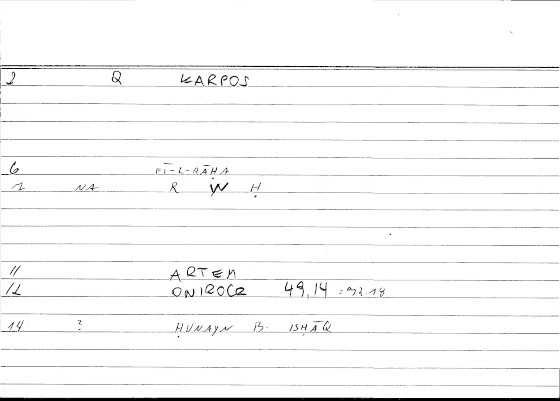 2 Q KARPOS
6 FĪ-L-RĀḤA
7 NA R W Ḥ
11 ARTEM
12 ONIROCR 49,14 = 92.18
14 ? ḤUNAYN B. ISḤĀQ